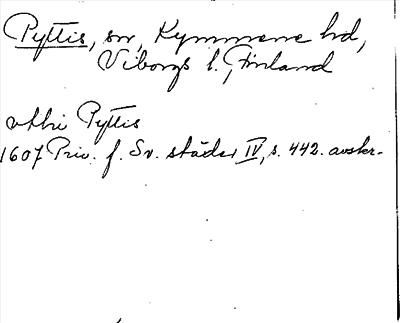 Pyttis, sn, Kymmene hd,
Viborgs l. Finland
vthi Pyttis
1607 Priv. f. Sv. städer IV, s. 442. avskr.